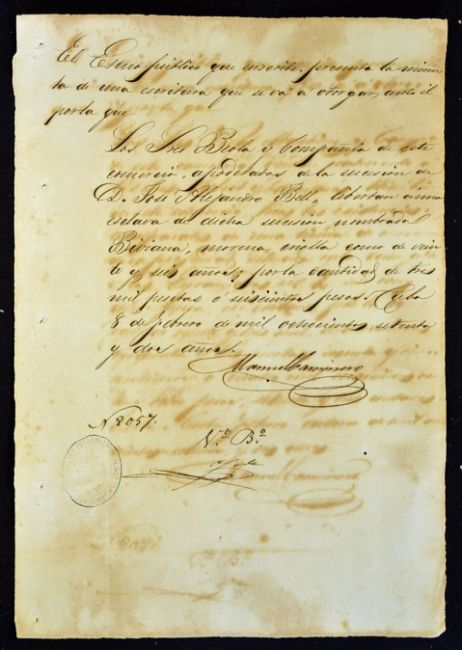 El Escno público que suscribe, presenta la minu
ta de una escritura que se va á otorgar, ante él
por la que
Los Sres Brola y Compañía de este
comercio, apoderados de la sucesión de
D. José Alejandro Bell, libertan á una
esclava de dicha sucesión nombrada
Bibiana, morena criolla como de vein
te y seis años; por la cantidad de tres
mil pesetas ó seiscientos pesos. Cuba
8 de febrero de mil ochocientos setenta
y dos años.
Manuel Caminero
N 8057.
V.º B.º